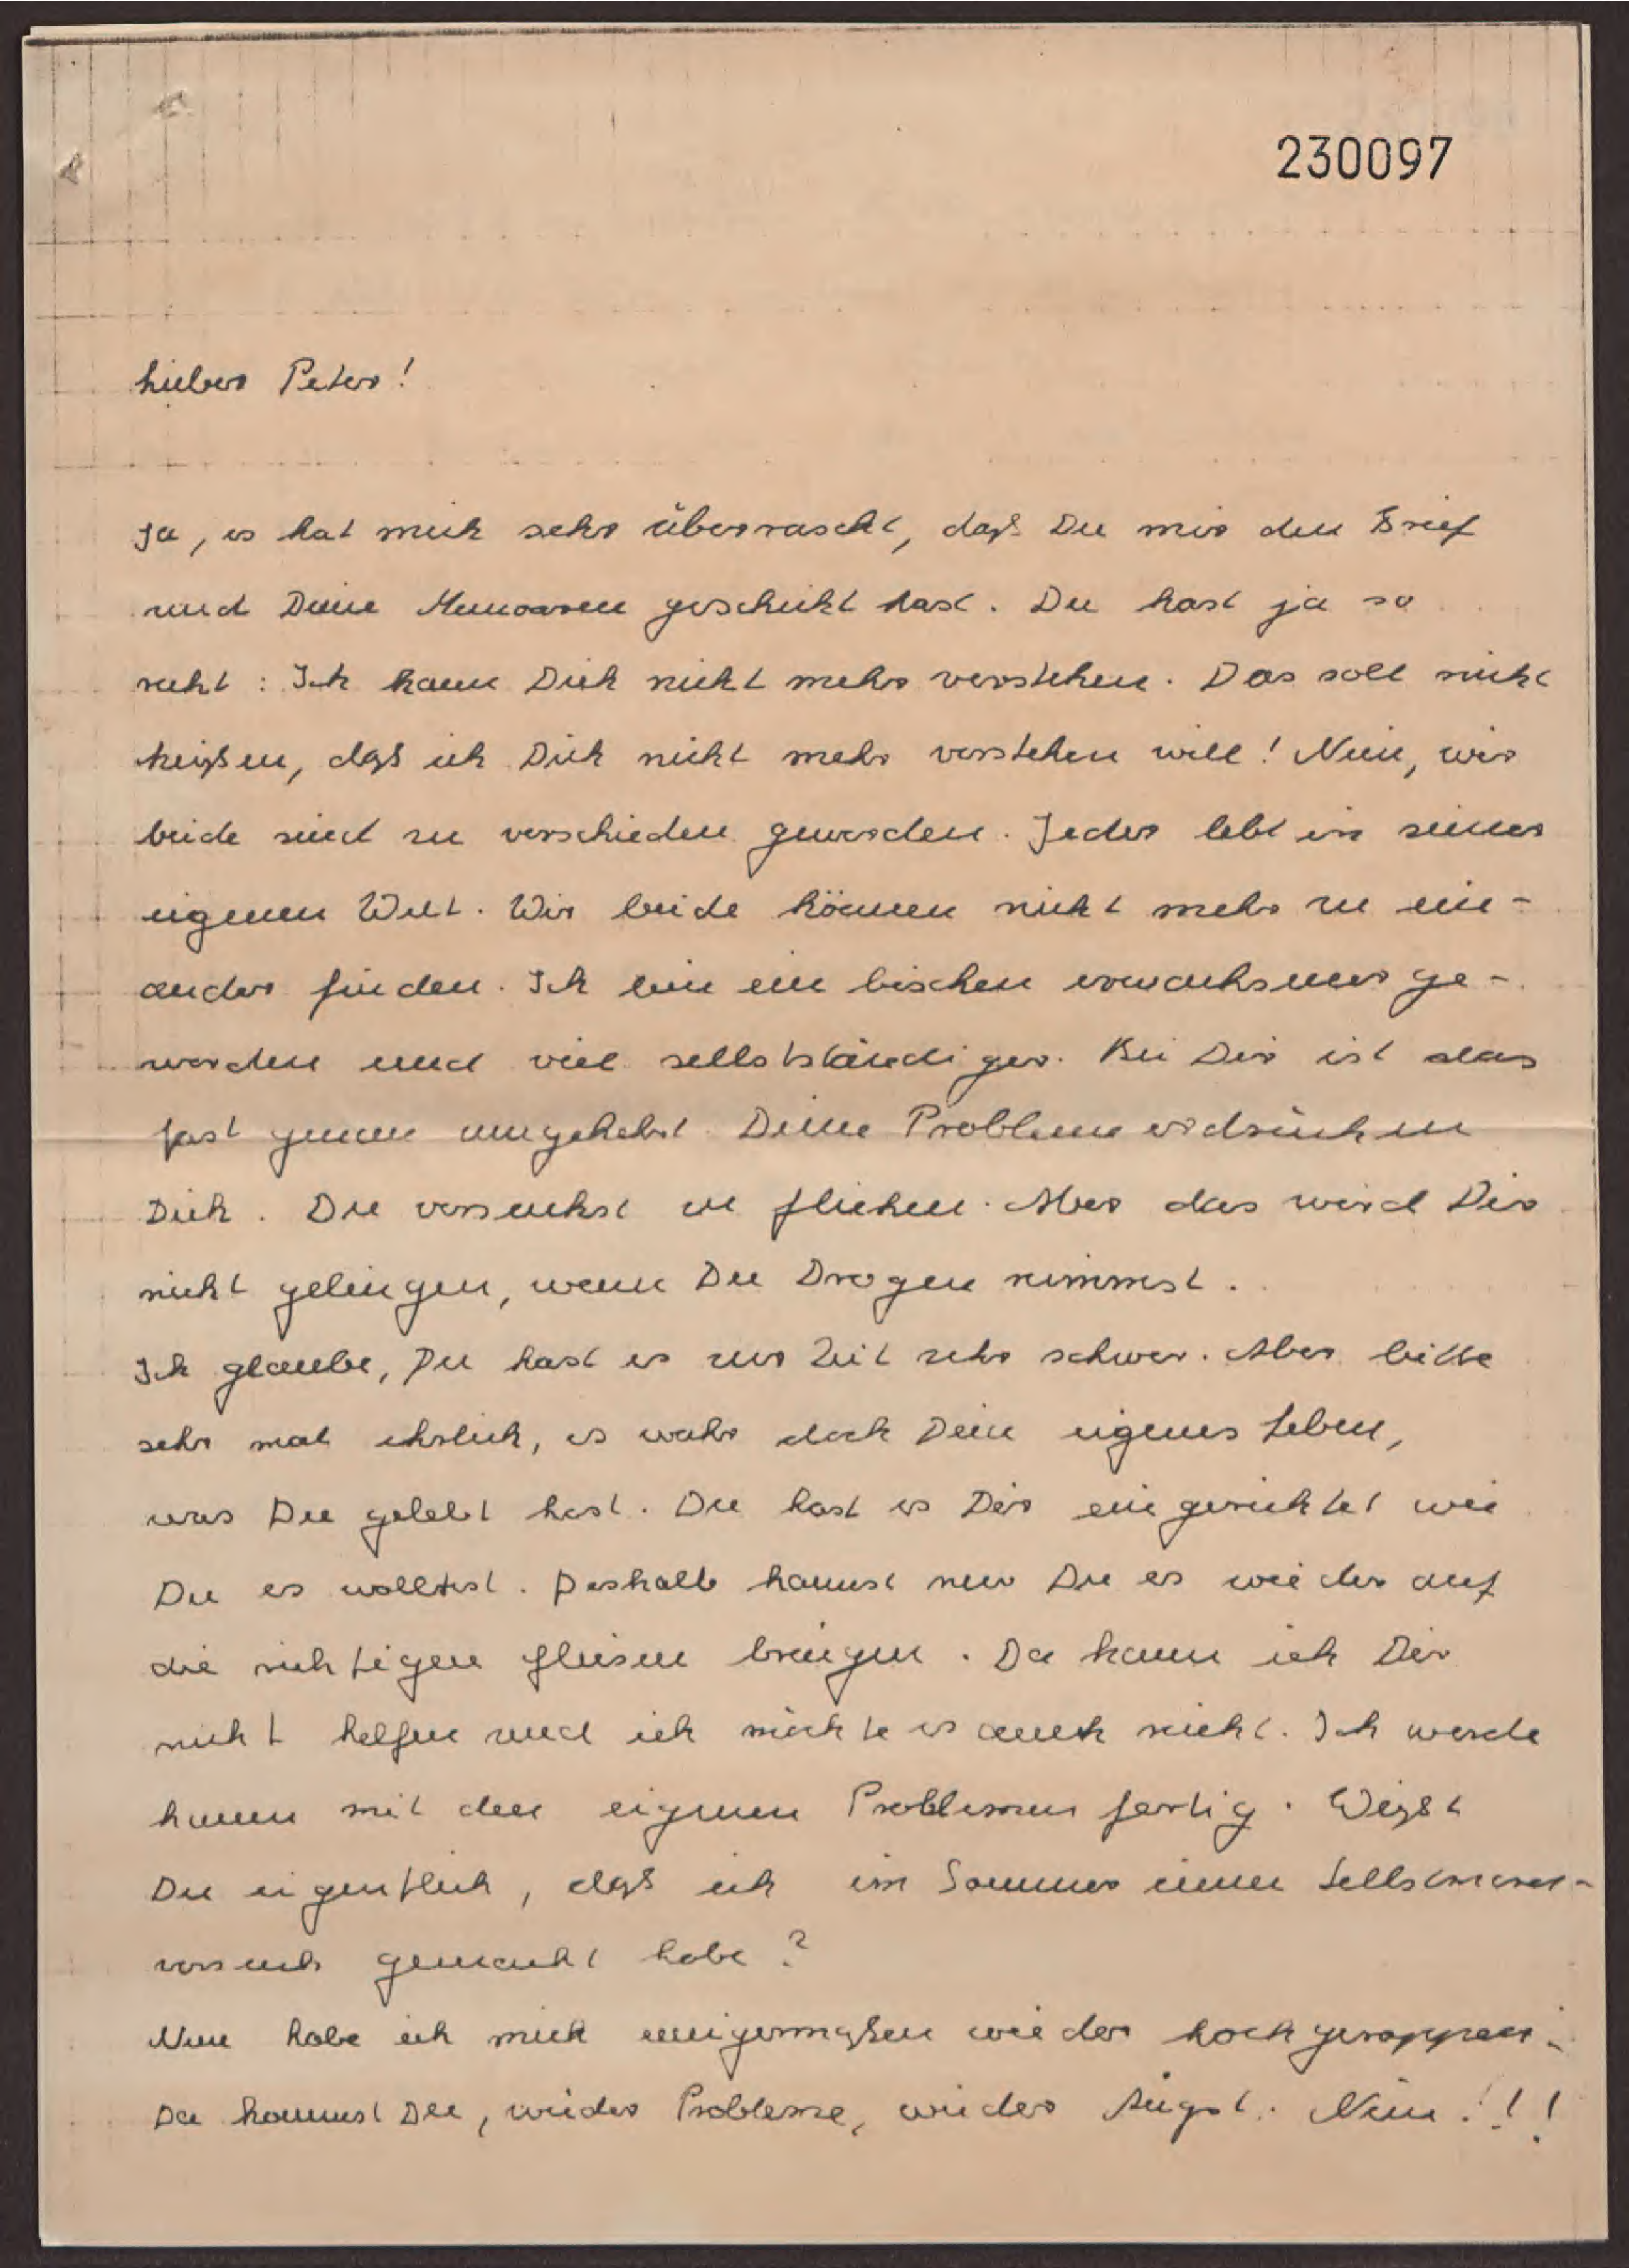 230097
Lieber Peter!
Ja, es hat mich sehr überrascht, daß Du mir den Brief
und Deine Memoaren geschickt hast. Du hast ja so
recht: Ich kann Dich nicht mehr verstehen. Das soll nicht
heißen, daß ich Dich nicht mehr verstehen will! Nein, wir
beide sind zu verschieden geworden. Jeder lebt in seiner
eigenen Welt. Wir beide können nicht mehr zu ein-
ander finden. Ich bin ein bischen erwachsener ge-
worden und viel selbstständiger. Bei Dir ist das
fast genau umgekehrt. Deine Probleme erdrücken
Dich. Du versuchst zu fliehen. Aber das wird Dir
nicht gelingen, wenn Du Drogen nimmst.
Ich glaube, Du hast es zur Zeit sehr schwer. Aber bitte
sehr mal ehrlich, es wahr doch Dein eigenes Leben,
was Du gelebt hast. Du hast es Dir eingerichtet wie
Du es wolltest. Deshalb kannst nur Du es wieder auf
die richtigen Gleisen bringen. Da kann ich Dir
nicht helfen und ich möchte es auch nicht. Ich werde
kaum mit den eigenen Problemen fertig. Weißt
Du eigentlich, daß ich im Sommer einen Selbstmord-
versuch gemacht habe?
Nun habe ich mich einigermaßen wieder hoch
Da kommst Du, wieder Probleme, wieder Angst. Nein!!!